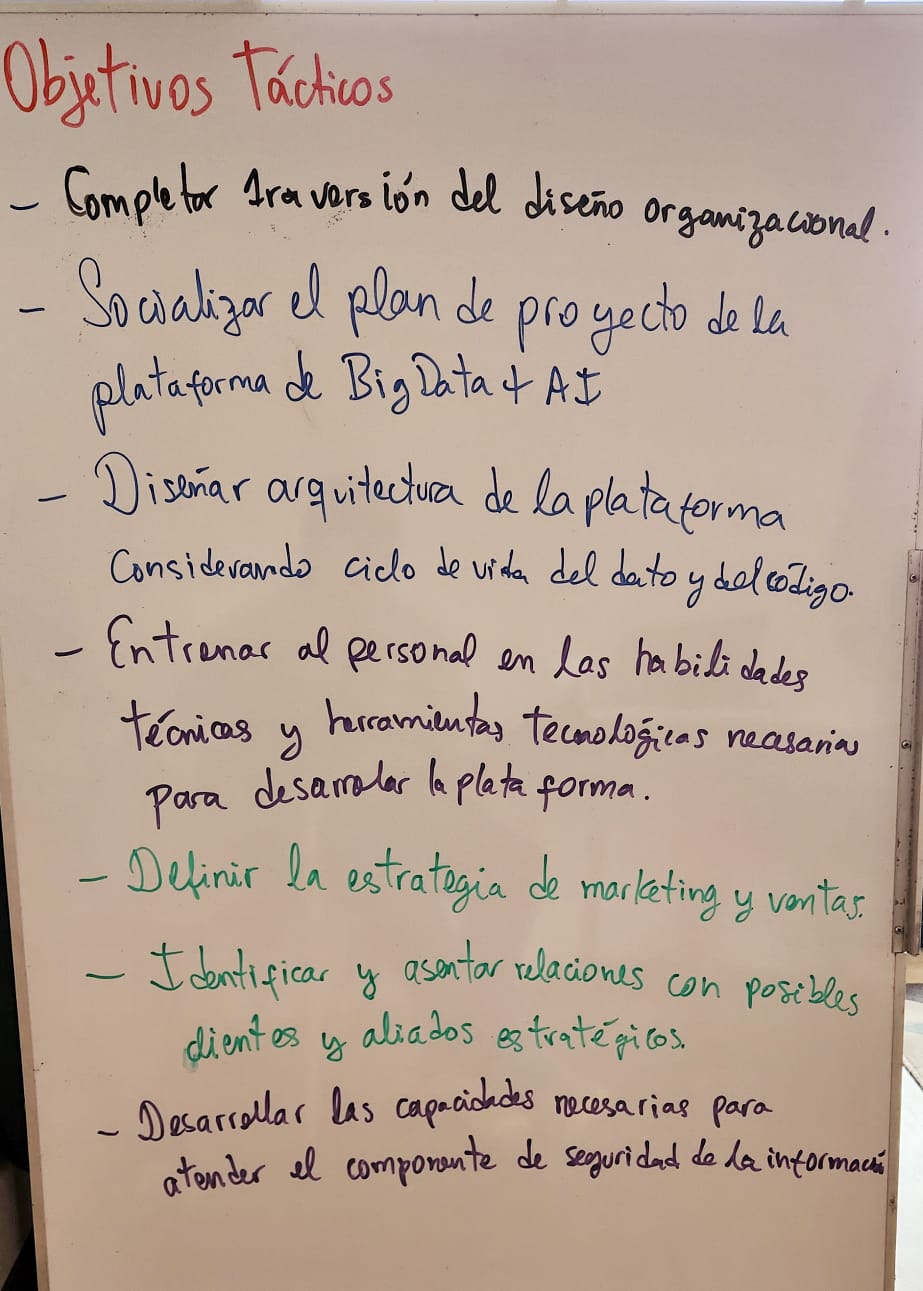 Objetivos Tácticos
- Completar 1ra versión del diseño organizacional.
- Socializar el plan de proyecto de la
plataforma de Big Data + AI
- Diseñar arquitectura de la plataforma
Considerando ciclo de vida del dato y del código.
- Entrenar al personal en las habilidades
técnicas y herramientas tecnológicas necesarias
para desarrolar la plataforma.
- Definir la estrategia de marketing y ventas.
- Identificar y asentar relaciones con posibles
clientes y aliados estratégicos.
- Desarrollar las capacidades necesarias para
atender el componente de seguridad de la información